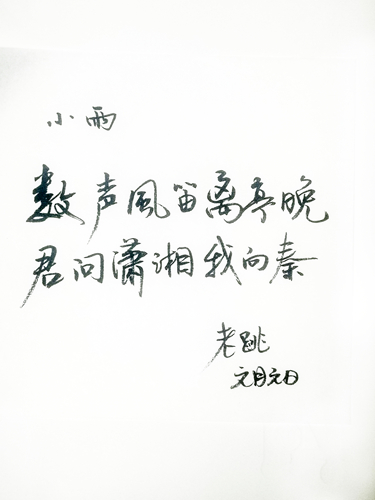 小雨
数声風笛离亭晚
君问潇湘我向秦
老跳
元月元日